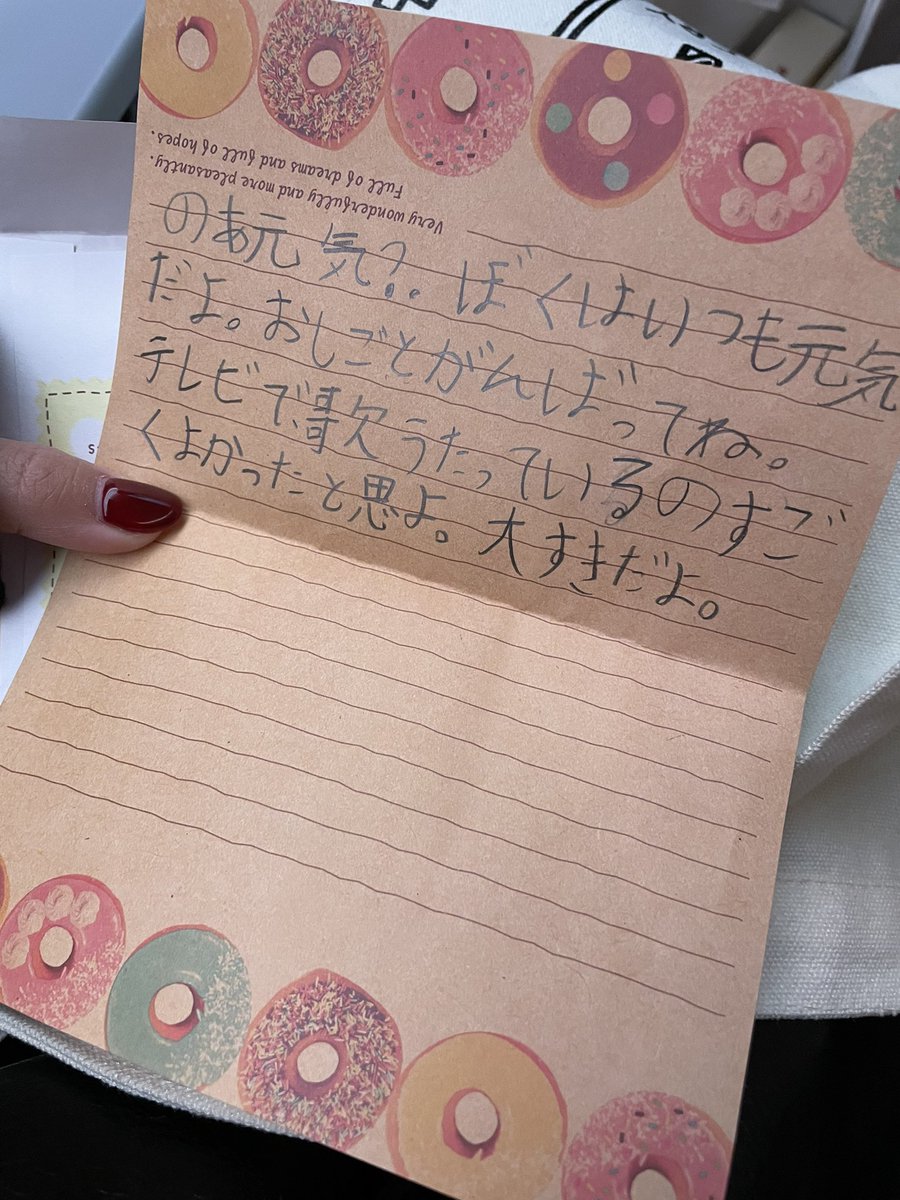 Very wonderfully and more pleasantly.
Full of dreams and full of hopes.
のあ元気?. ぼくはいつも元気
だよ。おしごとがんばってね。
テレビで歌うたっているのすご
くよかったと思よ。大すきだよ。